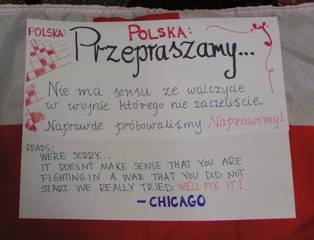 POLSKA:
POLSKA:
Przepraszamy...
Nie ma sensu że walczycie
w wojnie którego nie zaczeliście.
Naprawde próbowaliśmy. Naprawimy!
READS:
WE'RE SORRY...
IT DOESNT MAKE SENSE THAT YOU ARE
FIGHTING IN A WAR THAT YOU DID NOT
START. WE REALLY TRIED. WE'LL FIX IT!
- CHICAGO